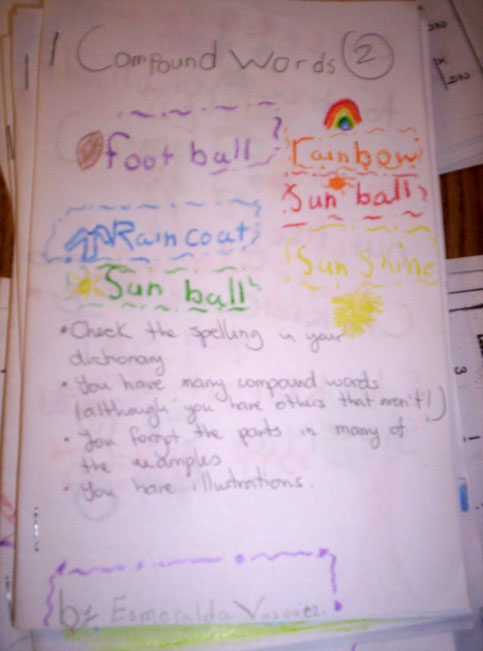 Compound Words 2
foot ball
rainbow
Sun ball
Rain Coat
Sun Shine
Sun ball
• Check the spelling in your
dictionary
• You have many compound words
(although you have others that aren't!)
• You forgot the parts in many of
the examples
• You have illustrations.
by Esmeralda Vasquez.
3